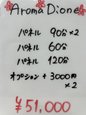 Aroma Dione
パネル 90分×2
パネル 60分
パネル 120分
オプション + 3000円
×2
¥51,000